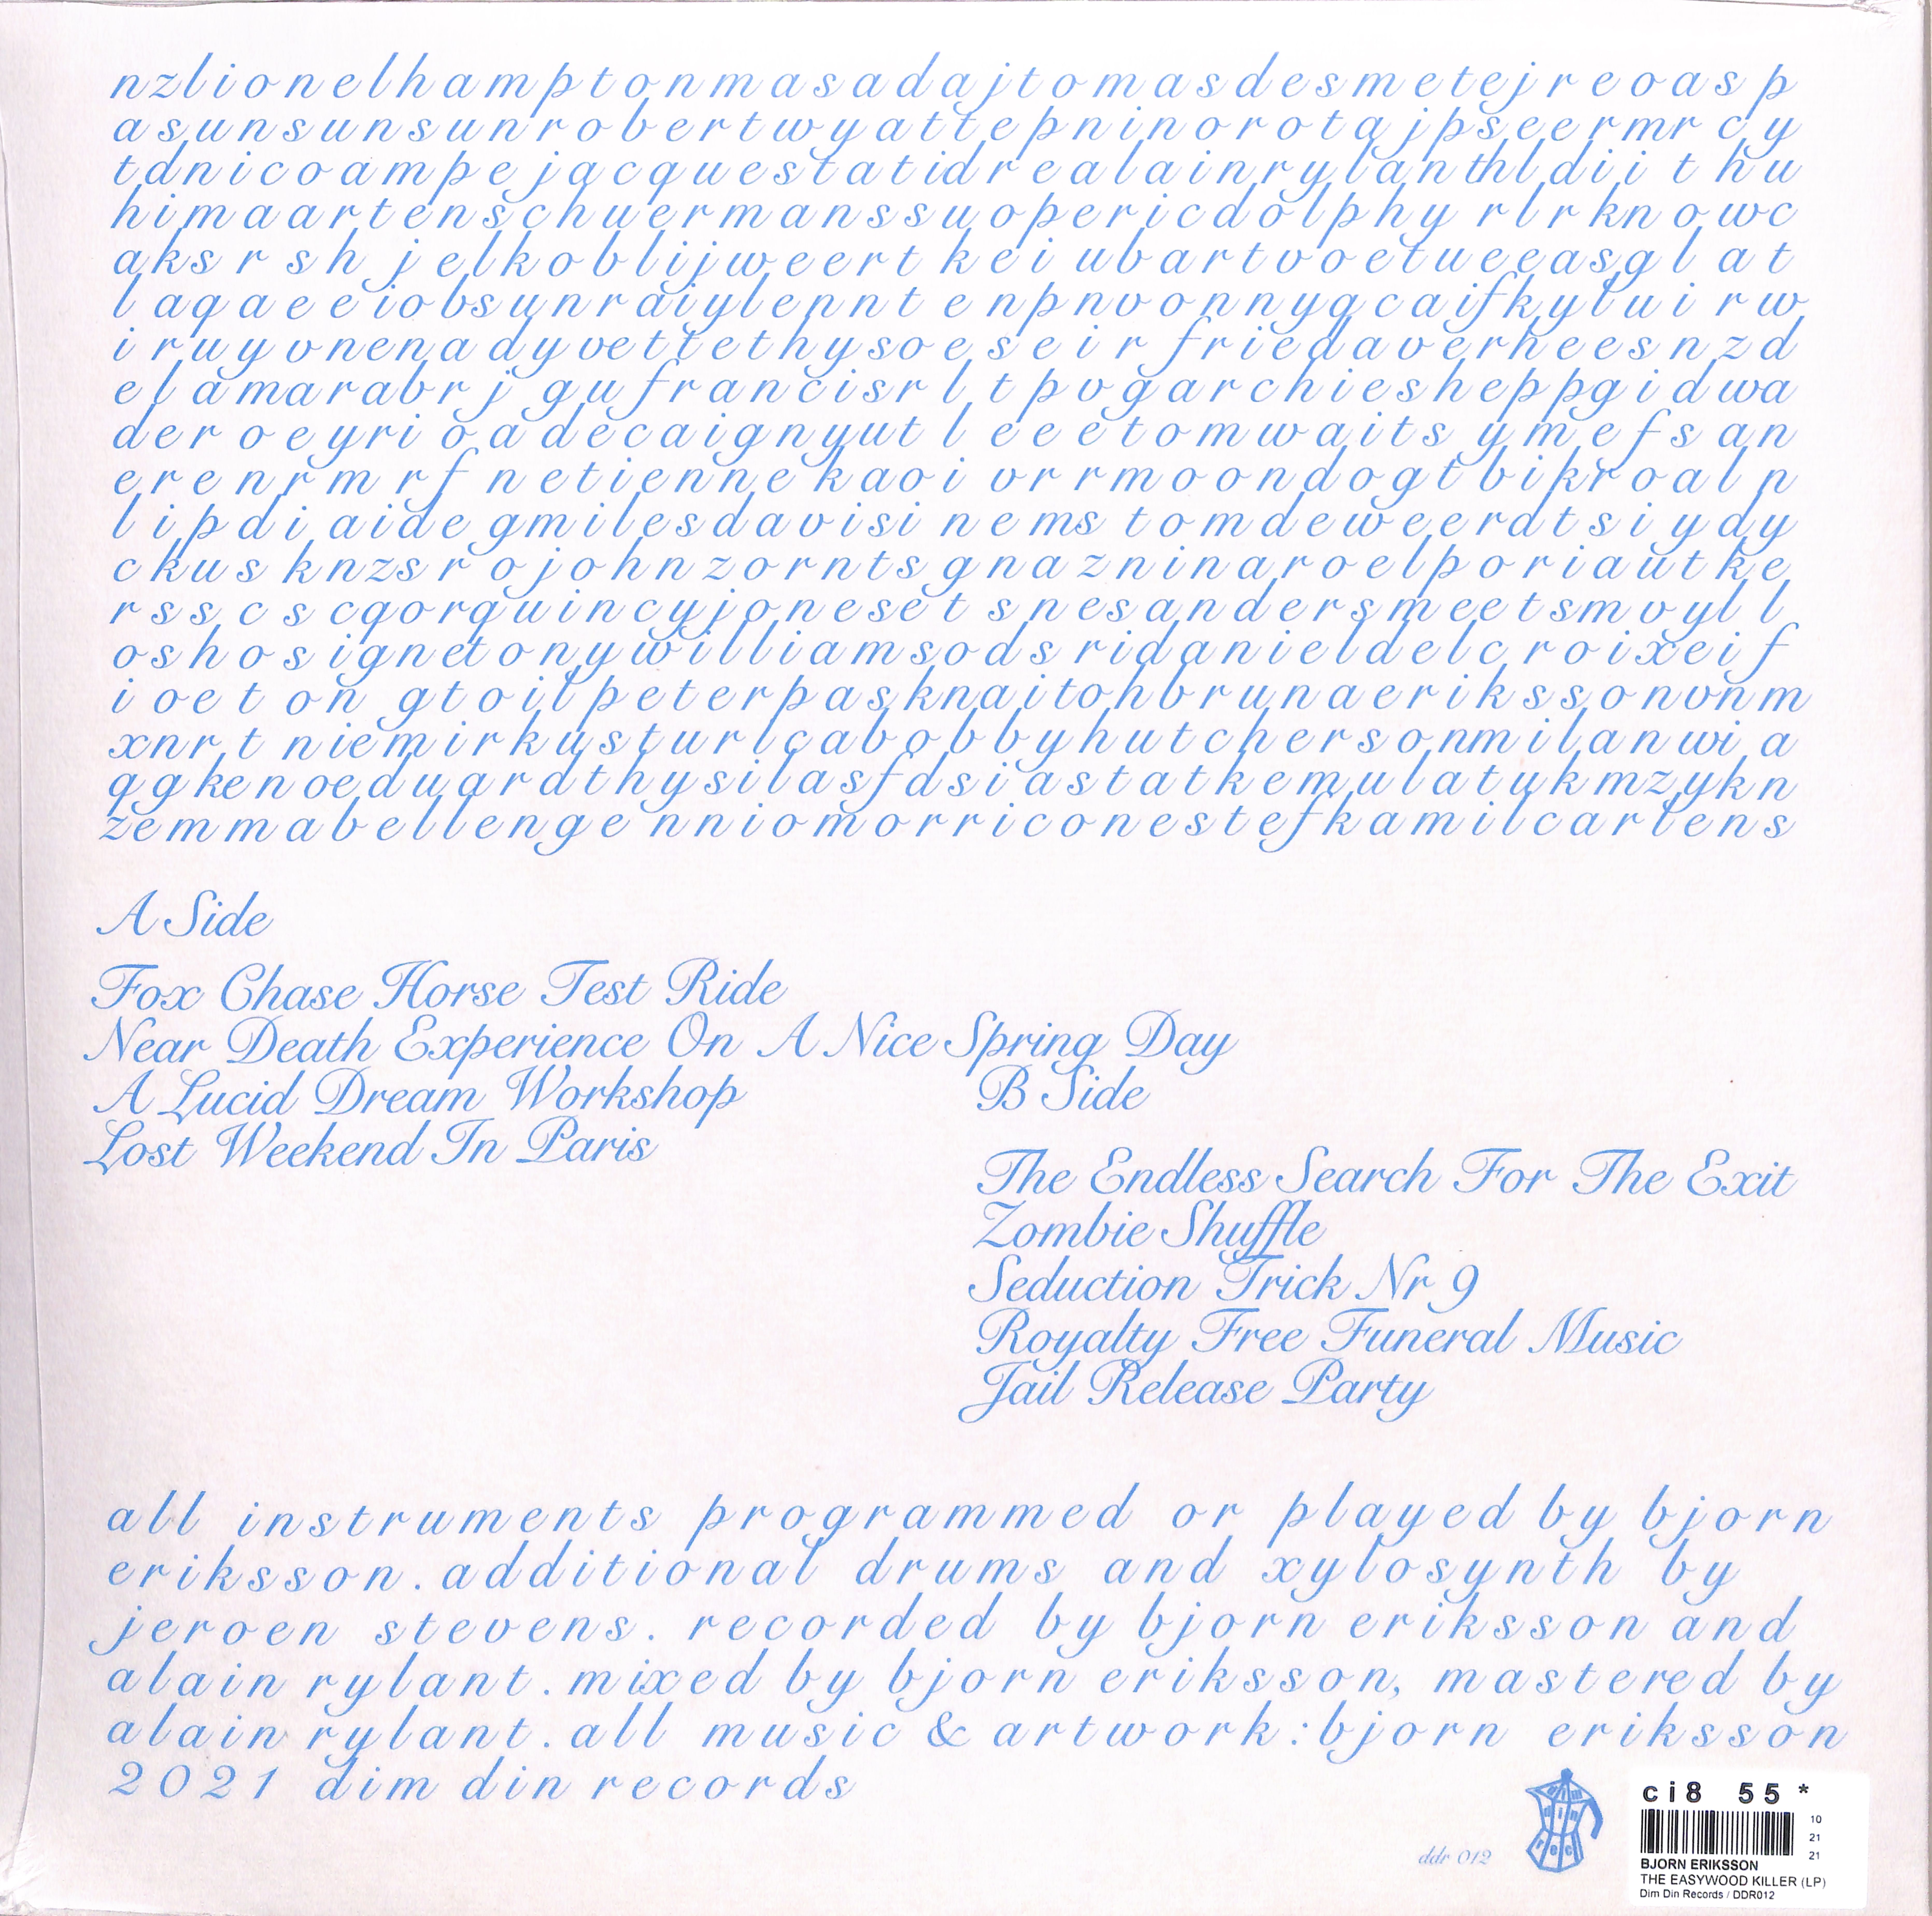 nzlionelhamptonmasadajtomasdesmetejreoasp
asunsunsunrobertwyattepninorotajpseermrcy
tdnicoampejacquestatidrealainrylanthldii t hu
himaartenschuermanssuopericdolphy rlrknowc
aks r sh jelkoblijweert kei ubartvoetueeasgl at
laqaeeiobsunraiylennt enpnvonnygcaifkylui rw
iruyvnenadyvettethysoeseir friedaverheesnzd
elamarabrj gufrancisrl tpvgarchiesheppgidwa
deroeyrioadecaignyut l eeetomwaits ymefsan
erenrmrf netiennekaoi vrrmoondogtbikroaln
lipdi aidegmilesdavisi nems tomdeweerdtsiydy
ckus knzsrojohnzorntsgnazninaroelporiautke
rss cs cqorquincyjoneset snesandersmeetsmvyll
oshosignetonywilliamsods ridanieldelcroixeif
ioeton gtoilpeterpasknaitohbrunaerikssonvnm
xnrt niemirkusturlcabobbyhutchersonmilanwi a
qgkenoeduardthysilasfdsiastatkemulatukmzykn
zemmabellengenniomorriconestefkamilcarlens
A Side
Fox Chase Horse Test Ride
Near Death Experience On A Nice Spring Day
A Lucid Dream Workshop
Lost Weekend In Paris
B Side
The Endless Search For The Exit
Zombie Shuffle
Seduction Trick Nr 9
Royalty Free Funeral Music
Jail Release Party
all instruments programmed or played by bjorn
eriksson. additional drums and xylosynth by
jeroen stevens. recorded by bjorn eriksson and
alain rylant. mixed by bjorn eriksson, mastered by
alain rylant. all music & artwork: bjorn eriksson
2021 dim din records
ddr 012
dim
din
rec
ci8 55 *
10
21
21
BJORN ERIKSSON
THE EASYWOOD KILLER (LP)
Dim Din Records / DDR012